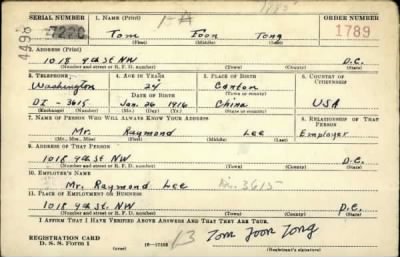 SERIAL NUMBER 1. NAME (Print) ORDER NUMBER
Tom Foon Tong 1789
(First) (Middle) (Last)
2. ADDRESS (Print)
1018 9th St NW D.C.
(Number and street or R. F. D. number) (Town) (County) (State)
3. TELEPHONE 4. AGE IN YEARS 5. PLACE OF BIRTH 6. COUNTRY OF CITIZENSHIP
Washington 24 Canton
(Town or county)
DATE OF BIRTH
DI - 3615 Jan. 26 1916 China USA
(Exchange) (Number) (Mo.) (Day) (Yr.) (State or country)
7. NAME OF PERSON WHO WILL ALWAYS KNOW YOUR ADDRESS 8. RELATIONSHIP OF THAT PERSON
Mr. Raymond Lee Employer
(Mr., Mrs., Miss) (First) (Middle) (Last)
9. ADDRESS OF THAT PERSON
1018 9th St. NW D.C.
(Number and street or R. F. D. number) (Town) (County) (State)
10. EMPLOYER'S NAME
Mr. Raymond Lee 3615
11. PLACE OF EMPLOYMENT OR BUSINESS
1018 9th St. NW D.C.
(Number and street or R. F. D. number) (Town) (County) (State)
I AFFIRM THAT I HAVE VERIFIED ABOVE ANSWERS AND THAT THEY ARE TRUE.
REGISTRATION CARD
D. S. S. Form 1 (over) 13 Tom Foon Tong
(Registrant's signature)